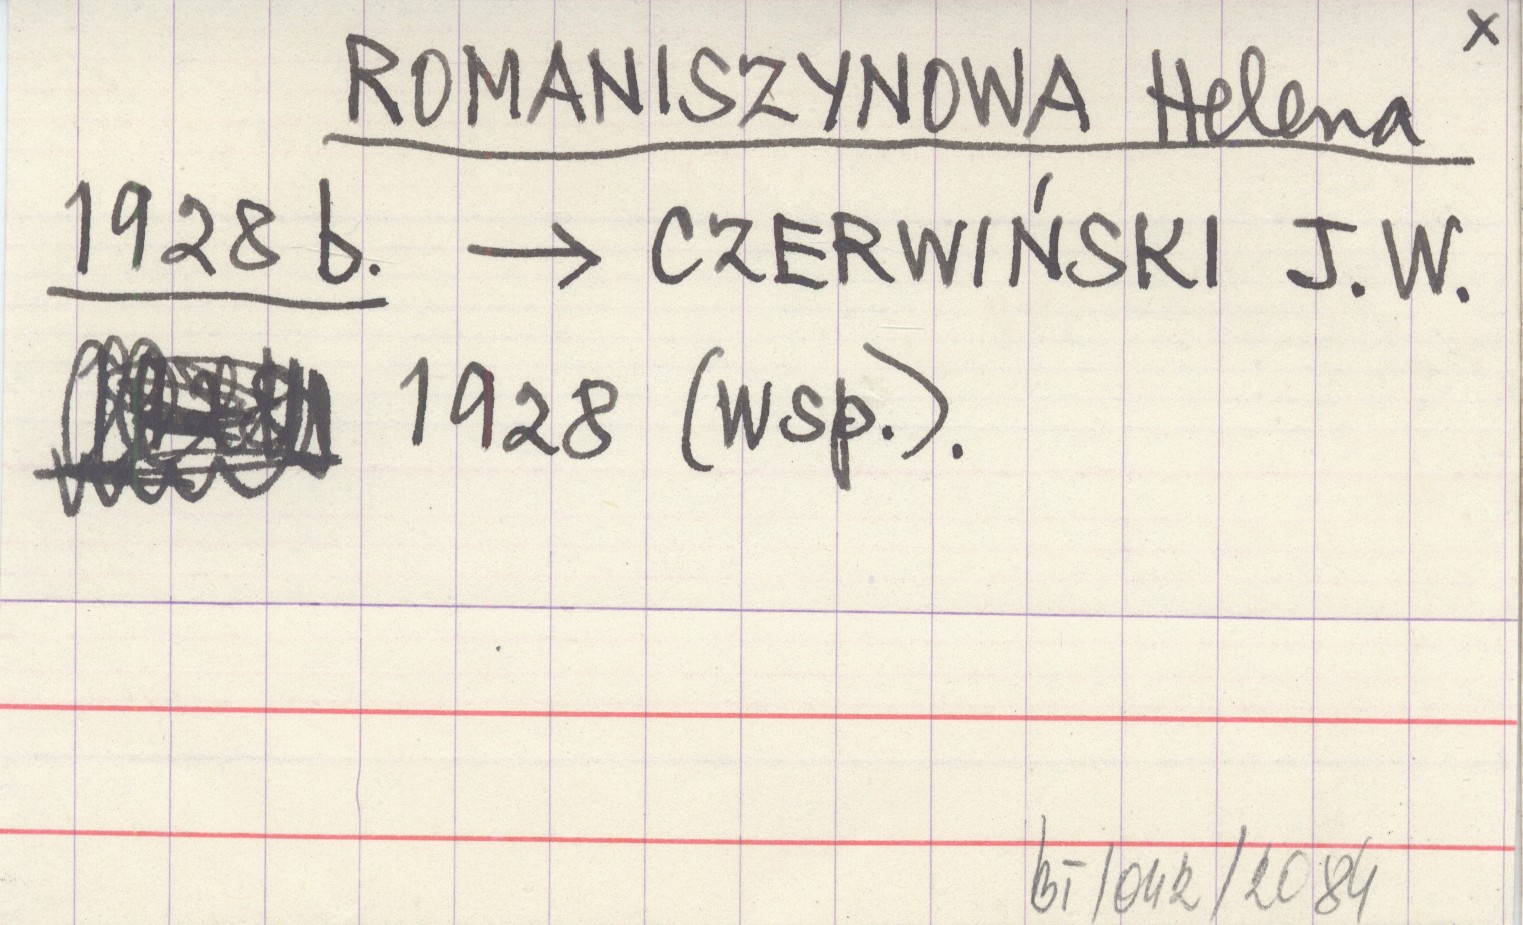 x
ROMANISZYNOWA Helena
1928 b. → CZERWIŃSKI J. W.
1928 (wsp.).
BI/042/2084